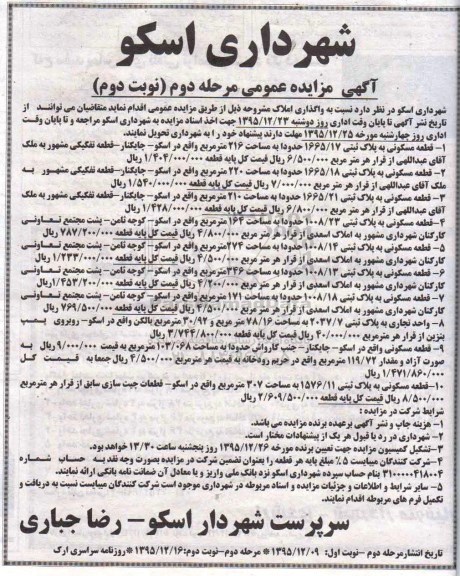 شهرداری اسکو
آگهی مزایده عمومی مرحله دوم (نوبت دوم)
شهرداری اسکو در نظر دارد نسبت به واگذاری املاک مشروحه ذیل از طریق مزایده عمومی اقدام نماید متقاضیان می توانند از
تاریخ نشر آگهی تا پایان وقت اداری روز دوشنبه ۱۳۹۵/۱۲/۲۳ جهت اخذ اسناد مزایده به شهرداری اسکو مراجعه و تا پایان وقت
اداری روز چهارشنبه مورخه ۱۳۹۵/۱۲/۲۵ مهلت دارند پیشنهاد خود را به شهرداری تحویل نمایند.
۱- قطعه مسکونی به پلاک ثبتی ۱۶۶۵/۱۷ حدودا به مساحت ۲۱۶ مترمربع واقع در اسکو- جایکنار-قطعه تفکیکی مشهور به ملک
آقای عبداللهی از قرار هر متر مربع ۶/۵۰۰/۰۰۰ ریال قیمت کل پایه قطعه ۱/۴۰۴/۰۰۰/۰۰۰ ریال
۲- قطعه مسکونی به پلاک ثبتی ۱۶۶۵/۱۸ حدودا به مساحت ۲۲۰ مترمربع واقع در اسکو- جایکنار-قطعه تفکیکی مشهور به
ملک آقای عبداللهی از قرار هر متر مربع ۷/۰۰۰/۰۰۰ ریال قیمت کل پایه قطعه ۱/۵۴۰/۰۰۰/۰۰۰ ریال
۳- قطعه مسکونی به پلاک ثبتی ۱۶۶۵/۲۱ حدودا به مساحت ۲۱۰ مترمربع واقع در اسکو- جایکنار-قطعه تفکیکی مشهور به ملک
آقای عبداللهی از قرار هر متر مربع ۶/۸۰۰/۰۰۰ ریال قیمت کل پایه قطعه ۱/۴۲۸/۰۰۰/۰۰۰ ریال
۴- قطعه مسکونی به پلاک ثبتی ۱۰۰۸/۲۲ حدودا به مساحت ۱۶۴ مترمربع واقع در اسکو- کوچه ثامن- پشت مجتمع تعاونی
کارکنان شهرداری مشهور به املاک اسعدی از قرار هر متر مربع ۴/۸۰۰/۰۰۰ ریال قیمت کل پایه قطعه ۷۸۷/۲۰۰/۰۰۰ ریال
۵- قطعه مسکونی به پلاک ثبتی ۱۰۰۸/۱۴ حدودا به مساحت ۲۷۴ مترمربع واقع در اسکو- کوچه ثامن- پشت مجتمع تعاونی
کارکنان شهرداری مشهور به املاک اسعدی از قرار هر مترمربع ۴/۵۰۰/۰۰۰ ریال قیمت کل پایه قطعه ۱/۲۳۳/۰۰۰/۰۰۰ ریال
۶- قطعه مسکونی به پلاک ثبتی ۱۰۰۸/۱۳ حدودا به مساحت ۳۴۶ مترمربع واقع در اسکو- کوچه ثامن- پشت مجتمع تعاونی
کارکنان شهرداری مشهور به املاک اسعدی از قرار هر مترمربع ۴/۲۰۰/۰۰۰ ریال قیمت کل پایه قطعه ۱/۴۵۳/۲۰۰/۰۰۰ ریال
۷- قطعه مسکونی به پلاک ثبتی ۱۰۰۸/۱۸ حدودا به مساحت ۱۷۱ مترمربع واقع در اسکو- کوچه ثامن- پشت مجتمع تعاونی
کارکنان شهرداری مشهور به املاک اسعدی از قرار هر مترمربع ۴/۵۰۰/۰۰۰ ریال قیمت کل پایه قطعه ۷۶۹/۵۰۰/۰۰۰ ریال
۸- واحد تجاری به پلاک ثبتی ۲۰۳۷/۷ به مساحت ۷۸/۱۶ مترمربع و ۳۰/۹۲ مترمربع بالکن واقع در اسکو- روبروی پمپ
بنزین از قرار هر متر مربع ۴۰/۰۰۰/۰۰۰ ریال قیمت کل پایه قطعه ۳/۷۴۴/۸۰۰/۰۰۰ ریال
۹- قطعه مسکونی واقع در اسکو- جایکنار- جنب کارواش حدودا به مساحت ۱۰۳/۰۶۸ مترمربع به قیمت ۹/۰۰۰/۰۰۰ ریال به
صورت آزاد و مقدار ۱۱۹/۷۲ مترمربع واقع در حریم رودخانه به قیمت هر مترمربع ۴/۵۰۰/۰۰۰ ریال جمعا به قیمت کل
۱/۴۷۱/۸۶۰/۰۰۰ ریال
۱۰-قطعه مسکونی به پلاک ثبتی ۱۵۷۶/۱۱ به مساحت ۳۰۷ مترمربع واقع در اسکو- قطعات جیت سازی سابق از قرار هر مترمربع
۸/۵۰۰/۰۰۰ ریال قیمت کل پایه قطعه ۲/۶۰۹/۵۰۰/۰۰۰ ریال
شرایط شرکت در مزایده :
۱- هزینه چاپ و نشر آگهی برعهده برنده مزایده می باشد.
۲- شهرداری در رد یا قبول هر یک از پیشنهادات مختار است.
۳- تشکیل کمیسیون مزایده جهت تعیین برنده مورخه ۱۳۹۵/۱۲/۲۶ روز پنجشنبه ساعت ۱۳/۳۰ خواهد بود.
۴-شرکت کنندگان میبایست ۵٪ مبلغ پایه هر قطعه را بعنوان تضمین شرکت در مزایده بصورت وجه نقد به حساب شماره
۳۱۰۰۰۰۰۴۱۸۰۰۴ بنام حساب سپرده شهرداری اسکو نزد بانک ملی واریز و یا معادل آن ضمانت نامه بانکی ارائه نمایند.
۵- سایر شرایط و اطلاعات و جزئیات مزایده و اسناد مربوطه در شهرداری موجود است شرکت کنندگان میبایست نسبت به دریافت و
تکمیل فرم های مربوطه اقدام نمایند.
سرپرست شهردار اسکو- رضا جباری
تاریخ انتشارمرحله دوم -نوبت اول: ۱۳۹۵/۱۲/۰۹ * مرحله دوم-نوبت دوم:۱۳۹۵/۱۲/۱۶ *روزنامه سراسری ارک